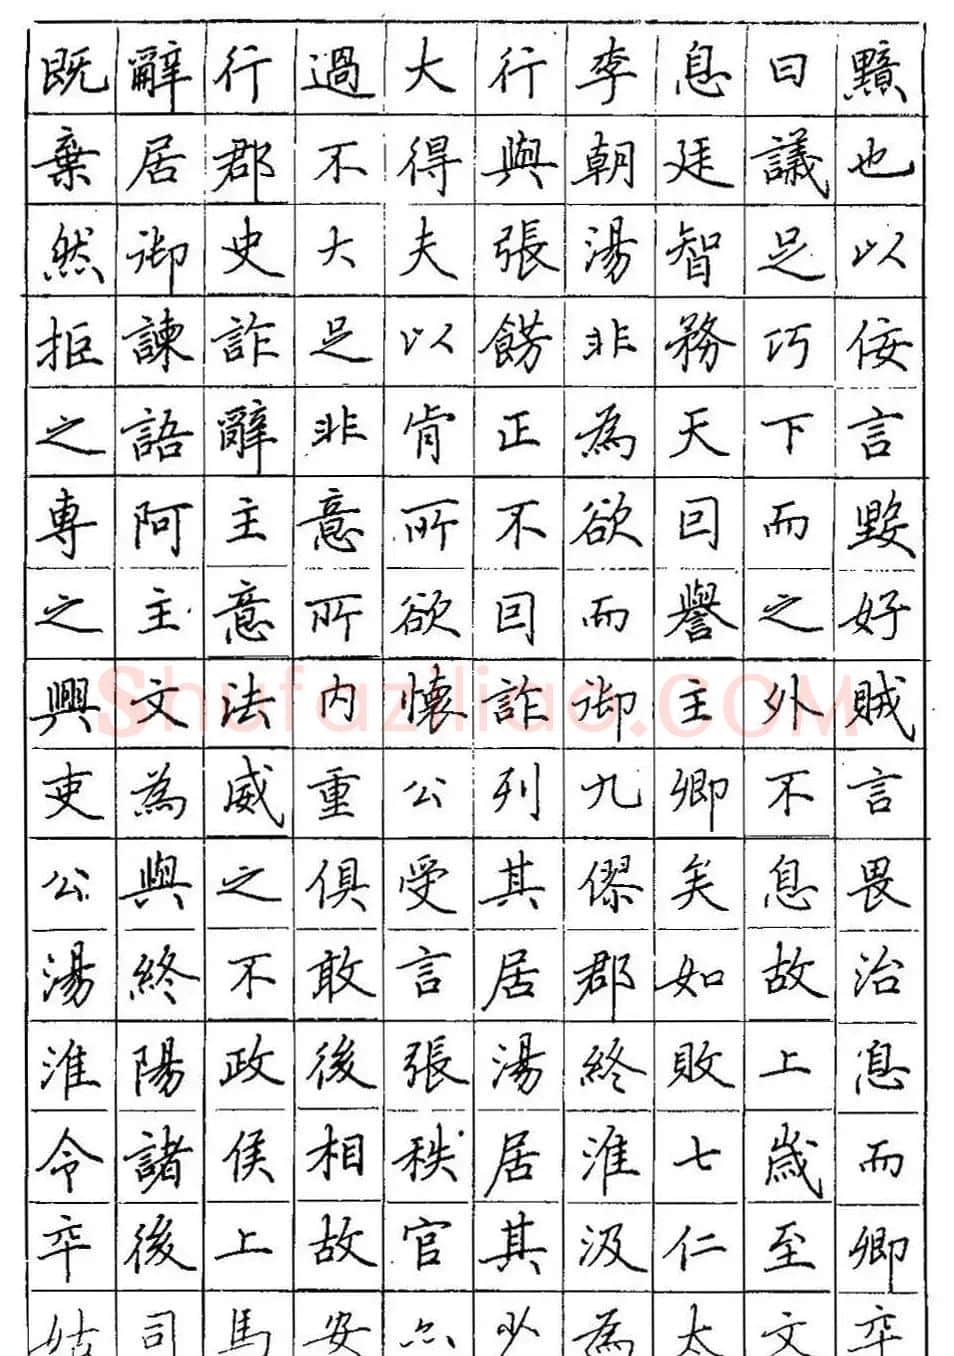 既辭行過大行李息曰黯
棄居郡不得與朝廷議也
然御史大夫張湯智足以
拒諫詐足以餝非務巧佞
之語辭非肯正為天下言
專阿主意所不欲回而毀
之主意所欲回而譽之好
興文法內懷詐御主外賊
吏為威重公列九卿不言
公與之俱受其僇矣息畏
湯終不敢言居郡如故治
淮陽政後張湯終敗上息
令諸侯相秩居淮七歲而
卒後上故官其汲仁至卿
姑司馬安亦以為太文卒
Shufaziliao.COM